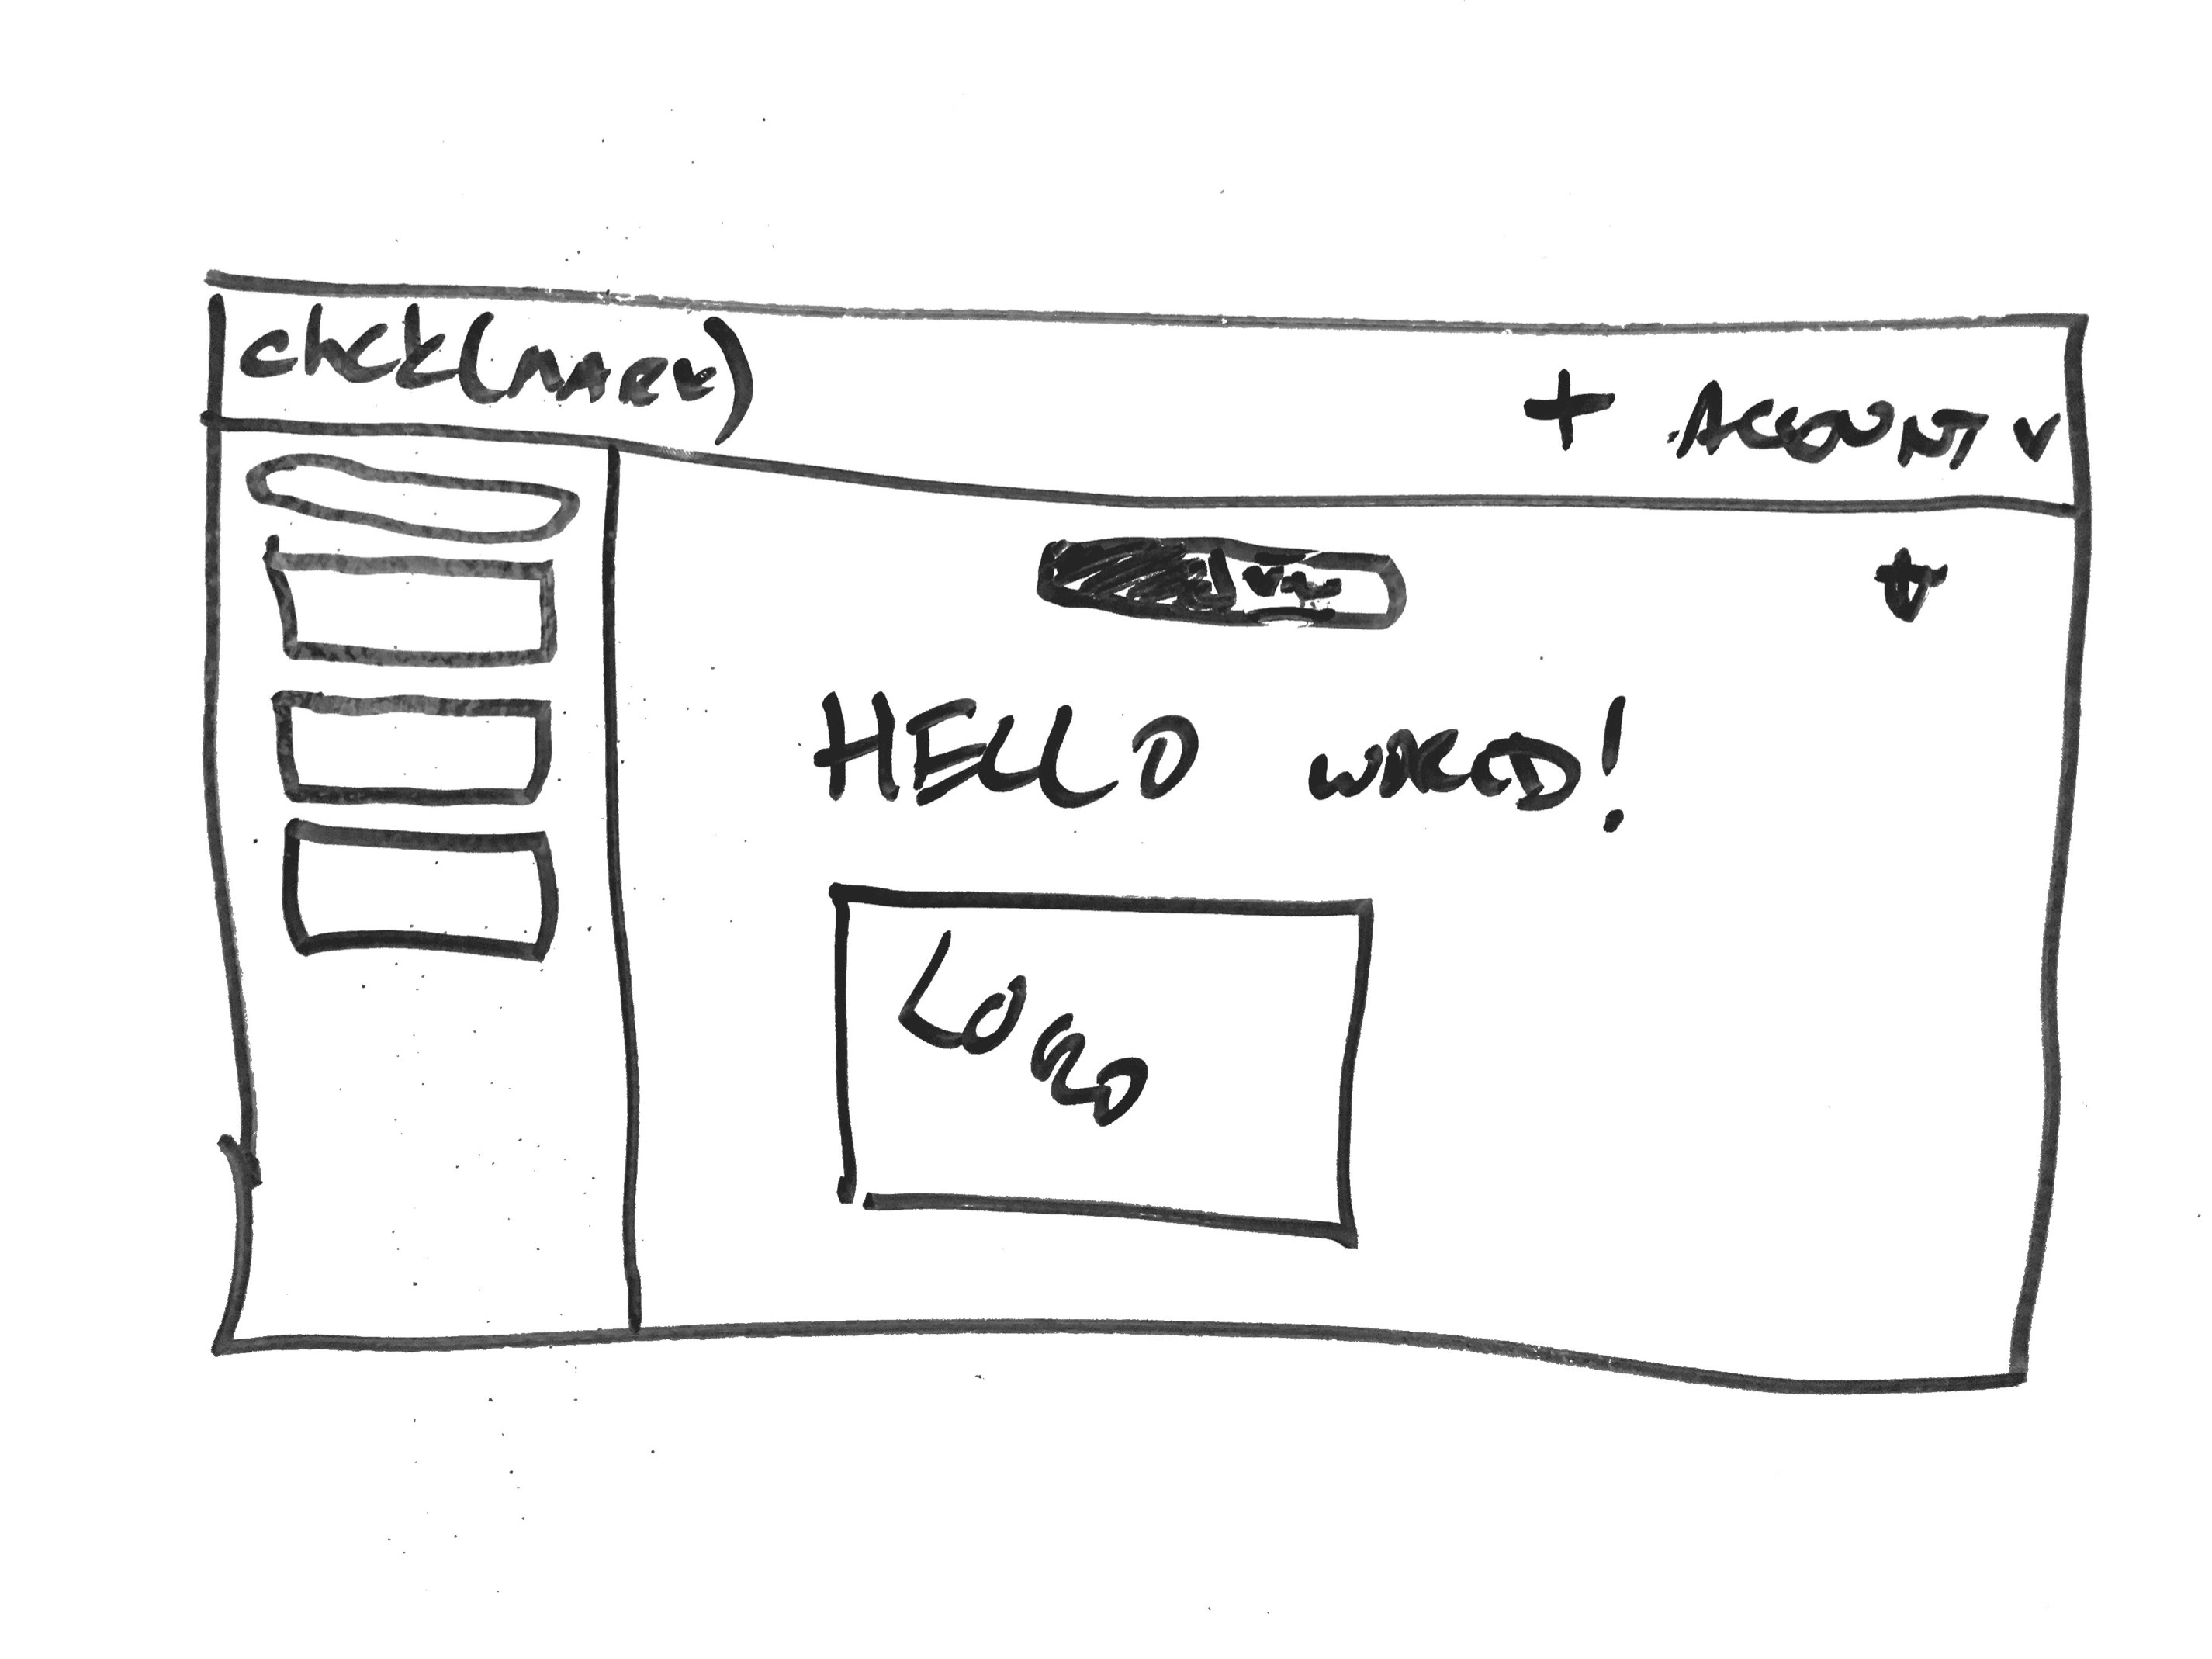 chck(MARK)
+ ACCOUNT v
HELLO WORLD!
LOGO